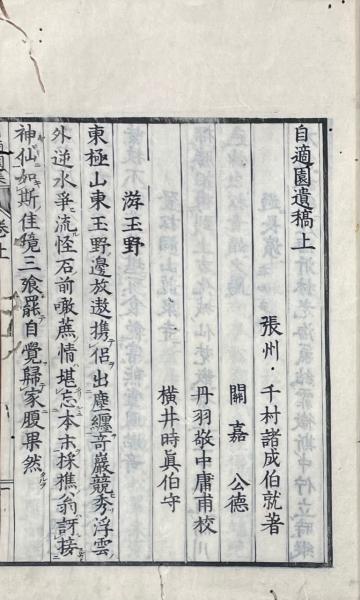 自適園遺稿上
張州・千村諸成伯就著
關嘉公德
丹羽敬中庸甫校
橫井時眞伯守
游玉野
東極山東玉野邊放遨携侶出塵纏奇巖競秀浮雲
外逆水爭流怪石前噉蔗情堪忘本末採樵翁訝接
神仙如斯佳境三飡罷自覺歸家腹果然
卷上